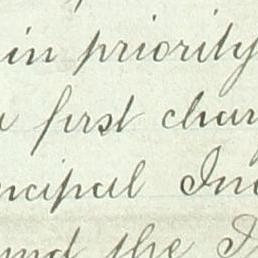 in priority
first char
ncipal Ind
und the